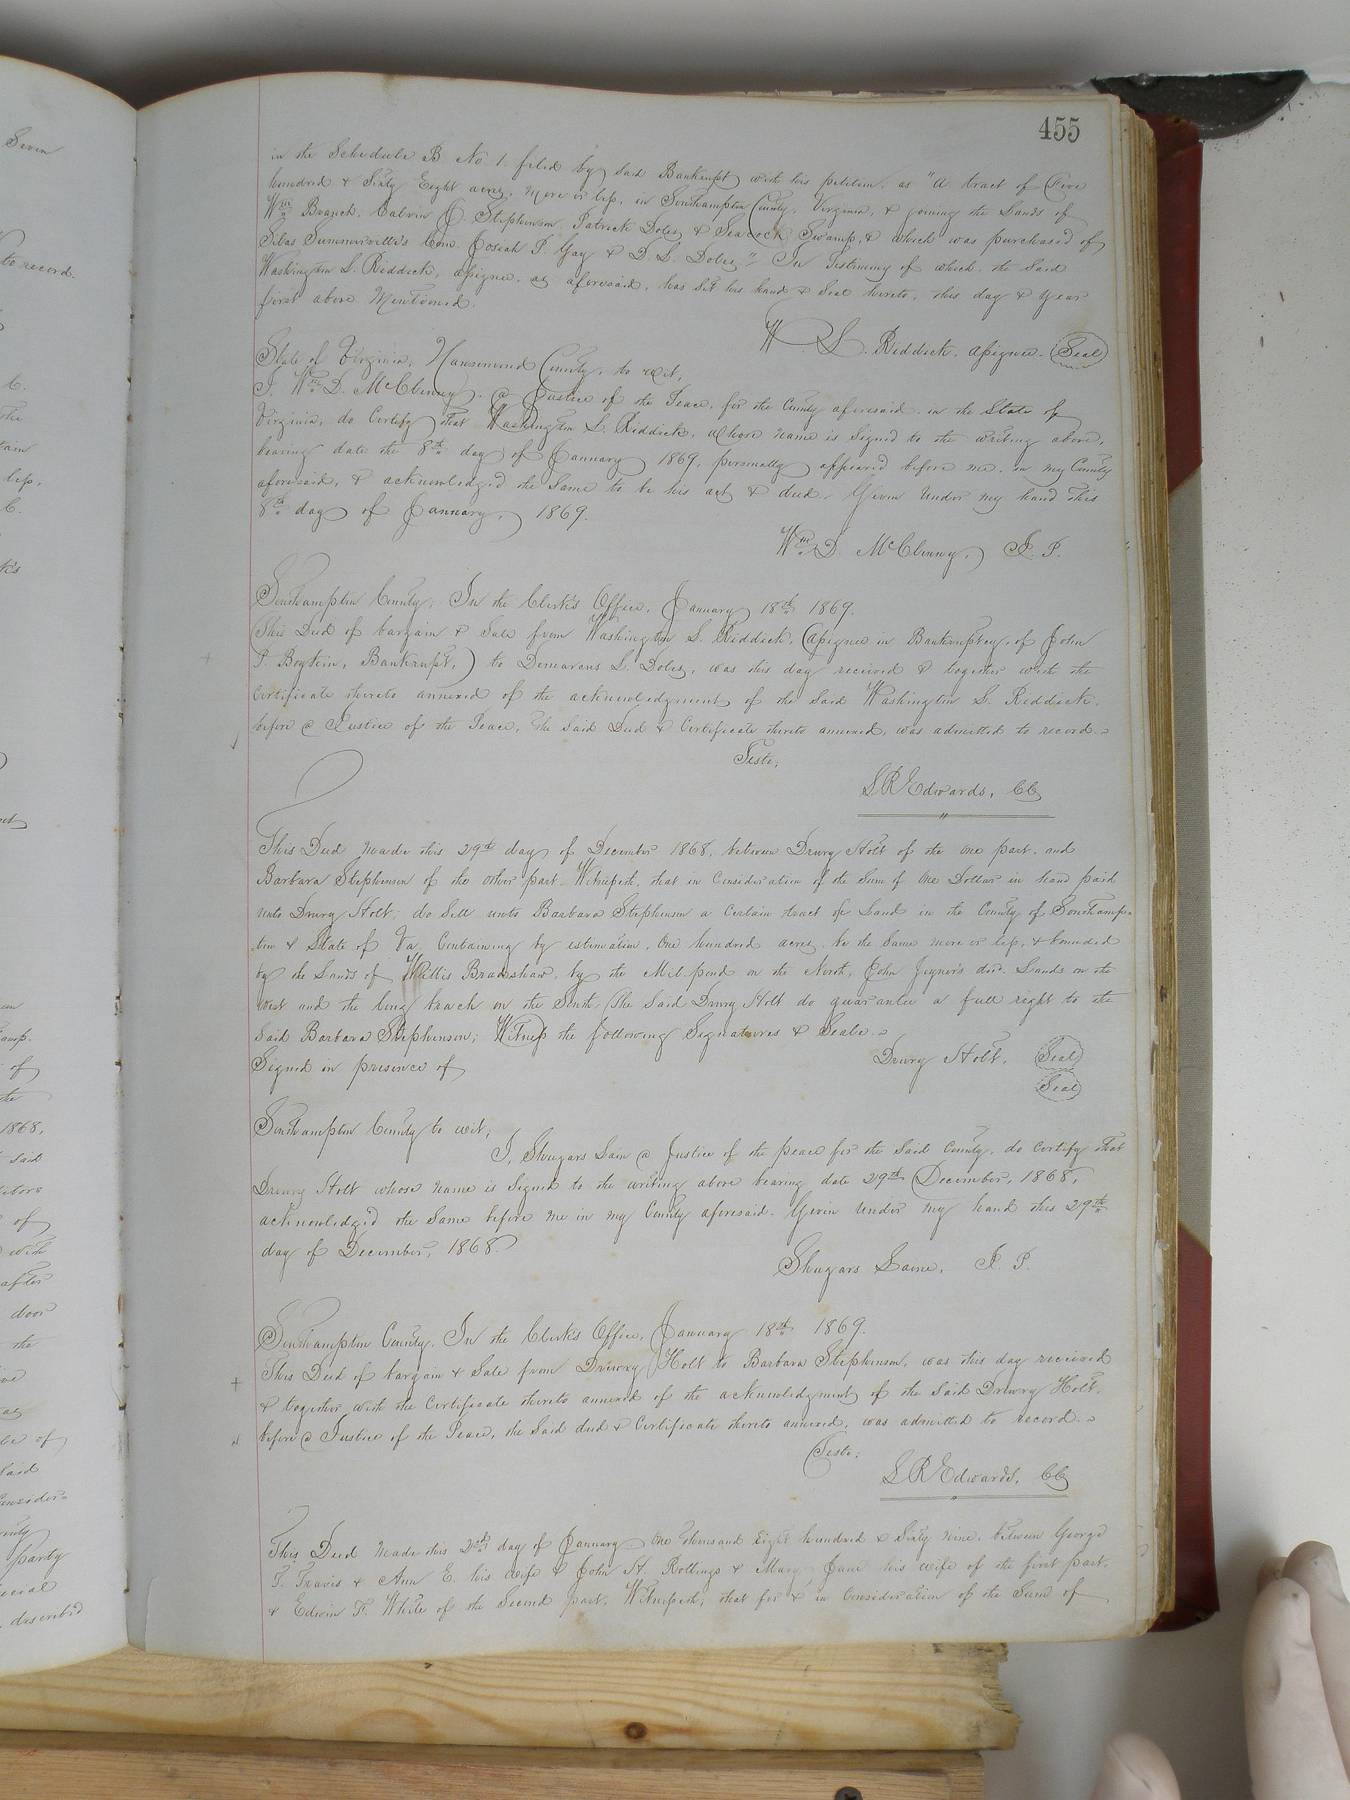 455
in the Schedule B No 1. filed by said Bankrupt with his petition, as "A tract of Five
hundred & Sixty Eight acres, more or less, in Southampton County, Virginia, & joining the Lands of
Wm Branch, Calvin J Stephenson, Patrick Doles & Seacock Swamp, & which was purchased of
Silas Summerville's Com. Josiah P. Gay & D. S. Doles" In Testimony of which, the said
Washington S. Riddick, assignee, as aforesaid, has set his hand & Seal hereto, this day & year
first above Mentioned.
W S. Riddick, assignee. Seal
State of Virginia, Nansemond County, to wit,
I, Wm D. McClenny, a Justice of the Peace, for the County aforesaid, in the State of
Virginia, do Certify that Washington S. Riddick, whose name is signed to the writing above,
bearing date the 8th day of January 1869, personally appeared before me, in my County
aforesaid, & acknowledged the same to be his act & deed. Given under my hand this
8th day of January, 1869.
Wm D. McClenny, J. P.
Southampton County. In the Clerk's Office, January 18th 1869.
This Deed of bargain & Sale from Washington S. Riddick, (assignee in Bankruptcy, of John
P. Boykin, Bankrupt,) to Demarcus S. Doles, was this day received & together with the
Certificate thereto annexed of the acknowledgment of the said Washington S. Riddick,
before a Justice of the Peace, the said Deed & Certificate thereto annexed, was admitted to record.
Teste;
L R Edwards, CC
This Deed made this 29th day of December 1868, between Drury Holt of the one part, and
Barbara Stephenson of the other part Witnesseth, that in Consideration of the Sum of One Dollar in hand paid
unto Drury Holt, do Sell unto Barbara Stephenson a Certain tract of Land in the County of Southamp=
ton & State of Va. Containing by estimation, One hundred acres, be the same more or less, & bounded
by the Lands of Willis Bradshaw, by the Mill pond on the North, John Joyner's decd. Lands on the
West and the long branch on the South, The Said Drury Holt do guarantee a full right to the
said Barbara Stephenson; Witness the following Signatures & Seals.
Signed in presence of Drury Holt, Seal
Seal
Southampton County to wit;
I, Shugars Lain a Justice of the peace for the said County, do certify that
Drewry Holt whose name is Signed to the writing above bearing date 29th December, 1868,
acknowledged the same before me in my County aforesaid. Given under my hand this 29th
day of December, 1868.
Shugars Laine, J. P.
Southampton County. In the Clerk's Office, January 18th 1869.
This Deed of bargain & Sale from Drewry Holt to Barbara Stephenson, was this day received
& together with the Certificate thereto annexed of the acknowledgment of the said Drewry Holt,
before a Justice of the Peace, the said deed & Certificate thereto annexed, was admitted to record.
Teste;
L R Edwards, CC
This Deed made this 2nd day of January One thousand Eight hundred & Sixty nine, between George
T. Travis & Ann E. his wife & John H. Rollings & Mary Jane his wife of the first part,
& Edwin F. White of the Second part, Witnesseth, that for & in Consideration of the Sum of